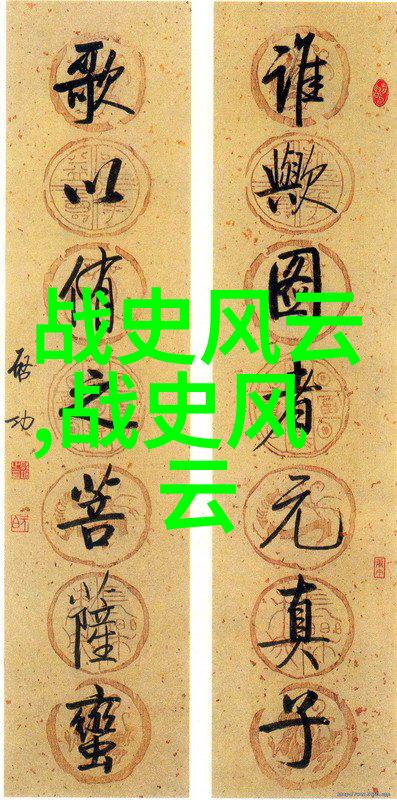 谁歟图者元真子
歌以侑之菩薩蠻
启功
战史风云
,战史风
云